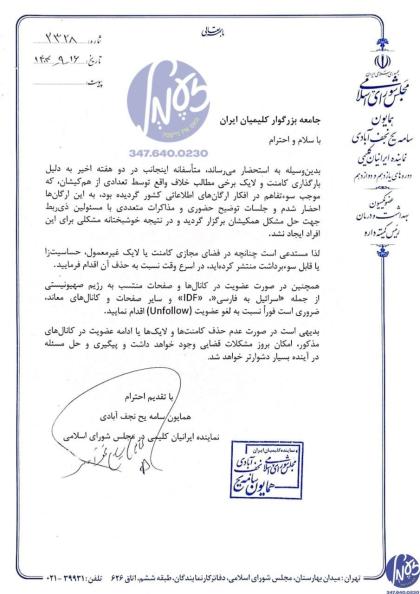 باسمه‌تعالی
شماره: ۲۳۲۸
تاریخ: ۱۴۰۴٫۹٫۱۶
پیوست:
مجلس شورای اسلامی
همایون
سامه یح نجف آبادی
نماینده ایرانیان کلیمی
دوره‌های یازدهم و دوازدهم
عضو کمیسیون
بهداشت و درمان
رئیس کمیته دارو
347.640.0230
جامعه بزرگوار کلیمیان ایران
با سلام و احترام
بدین‌وسیله به استحضار می‌رساند، متأسفانه اینجانب در دو هفته اخیر به دلیل
بارگذاری کامنت و لایک برخی مطالب خلاف واقع توسط تعدادی از هم‌کیشان، که
موجب سوءتفاهم در افکار ارگان‌های اطلاعاتی کشور گردیده بود، به این ارگان‌ها
احضار شدم و جلسات توضیح حضوری و مذاکرات متعددی با مسئولین ذی‌ربط
جهت حل مشکل همکیشان برگزار گردید و در نتیجه خوشبختانه مشکلی برای این
افراد ایجاد نشد.
لذا مستدعی است چنانچه در فضای مجازی کامنت یا لایک غیرمعمول، حساسیت‌زا
یا قابل سوءبرداشت منتشر کرده‌اید، در اسرع وقت نسبت به حذف آن اقدام فرمایید.
همچنین در صورت عضویت در کانال‌ها و صفحات منتسب به رژیم صهیونیستی
از جمله «اسرائیل به فارسی»، «IDF» و سایر صفحات و کانال‌های معاند،
ضروری است فوراً نسبت به لغو عضویت (Unfollow) اقدام نمایید.
بدیهی است در صورت عدم حذف کامنت‌ها و لایک‌ها یا ادامه عضویت در کانال‌های
مذکور، امکان بروز مشکلات قضایی وجود خواهد داشت و پیگیری و حل مسئله
در آینده بسیار دشوارتر خواهد شد.
با تقدیم احترام
همایون سامه یح نجف آبادی
نماینده ایرانیان کلیمی در مجلس شورای اسلامی
نماینده کلیمیان ایران
مجلس شورای اسلامی
همایون سامه یح نجف آبادی
تهران: میدان بهارستان، مجلس شورای اسلامی، دفاتر کار نمایندگان، طبقه ششم، اتاق ۶۲۶ تلفن: ۳۹۹۳۱-۰۲۱
347.640.0230